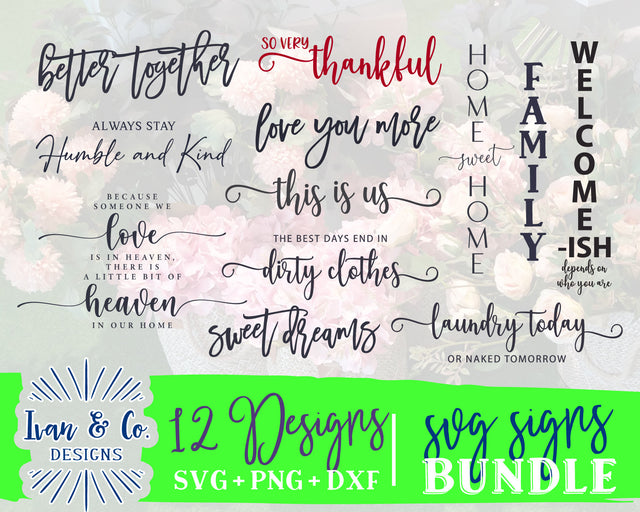 better together
SO VERY thankful
ALWAYS STAY
Humble and Kind
love you more
BECAUSE
SOMEONE WE
love
IS IN HEAVEN,
THERE IS
A LITTLE BIT OF
heaven
IN OUR HOME
this is us
THE BEST DAYS END IN
dirty clothes
sweet dreams
HOME
sweet
HOME
FAMILY
WELCOME
-ISH
depends on
who you are
laundry today
OR NAKED TOMORROW
Ivan & Co.
DESIGNS
12 Designs
SVG + PNG + DXF
svg signs
BUNDLE